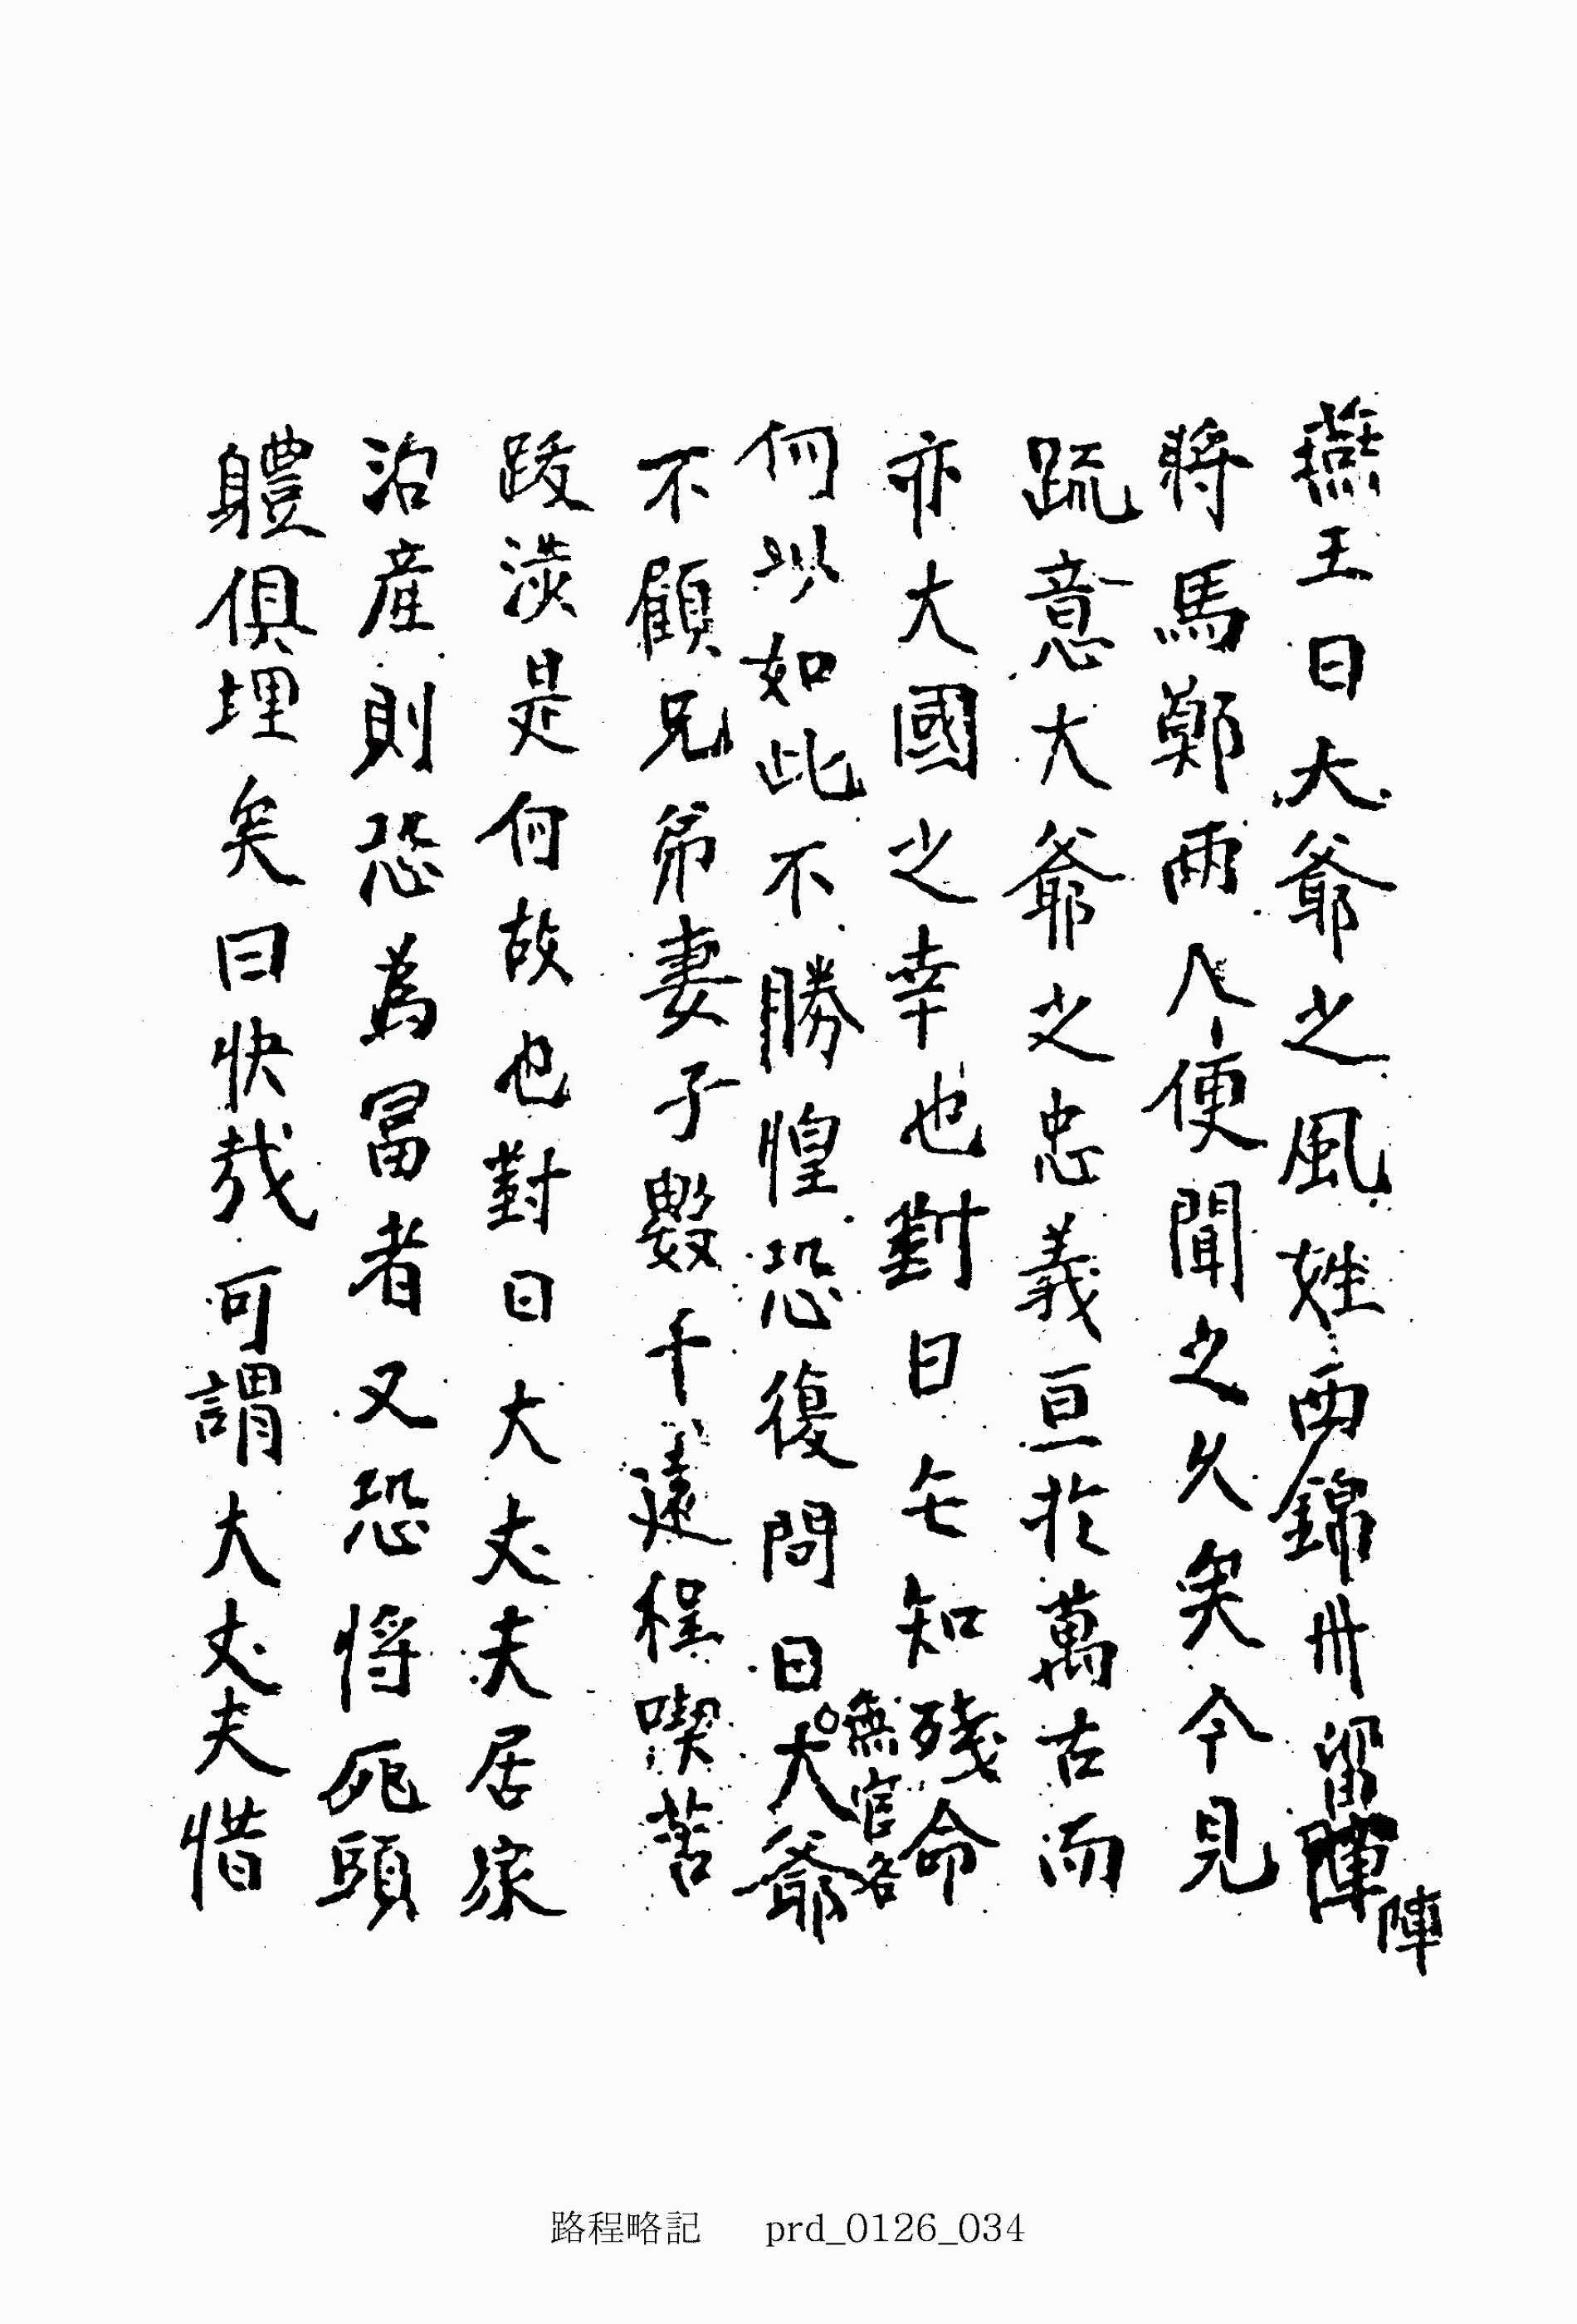 燕王曰大爺之風姓両錦卅留陣
陣
將馬鄭兩人便聞之久矣今見
疏意大爺之忠義亘於萬古而
亦大國之幸也對曰乇知殘命
無官名
何以如此不勝惶恐復問曰大爺
不顧兄弟妻子數千遠程喫苦
跋涉是何故也對曰大丈夫居家
治產則恐為冨者又恐将死頭
軆俱埋矣曰快哉可謂大丈夫惜
路程略記 prd_0126_034